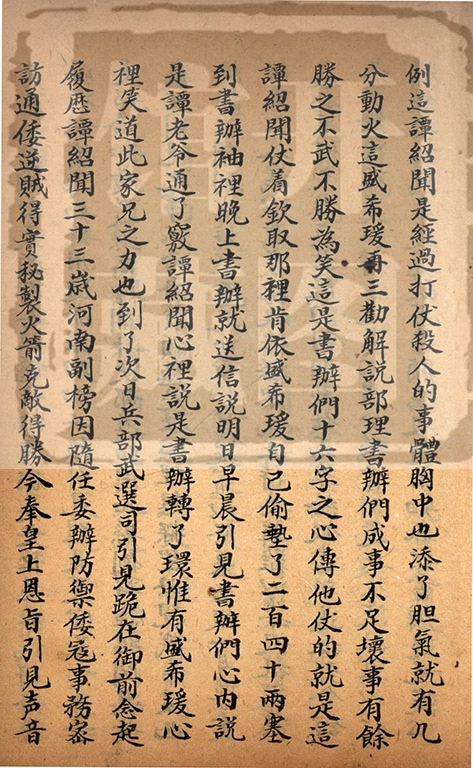 例這譚紹聞是經過打仗殺人的事體胸中也添了胆氣就有几
分動火這盛希瑗再三勸解說部理書辦們成事不足壞事有餘
勝之不武不勝為笑這是書辦們十六字之心傳他仗的就是這
譚紹聞仗着欽取那裡肯依盛希瑗自己偷墊了二百四十兩塞
到書辦袖裡晚上書辦就送信說明日早晨引見書辦們心內說
是譚老爺通了竅譚紹聞心裡說是書辦轉了環惟有盛希瑗心
裡笑道此家兄之力也到了次日兵部武選司引見跪在御前念起
履歷譚紹聞三十三歲河南副榜因隨任委辦防禦倭寇事務密
訪通倭逆賊得實秘製火箭克敵得勝今奉皇上恩旨引見声音